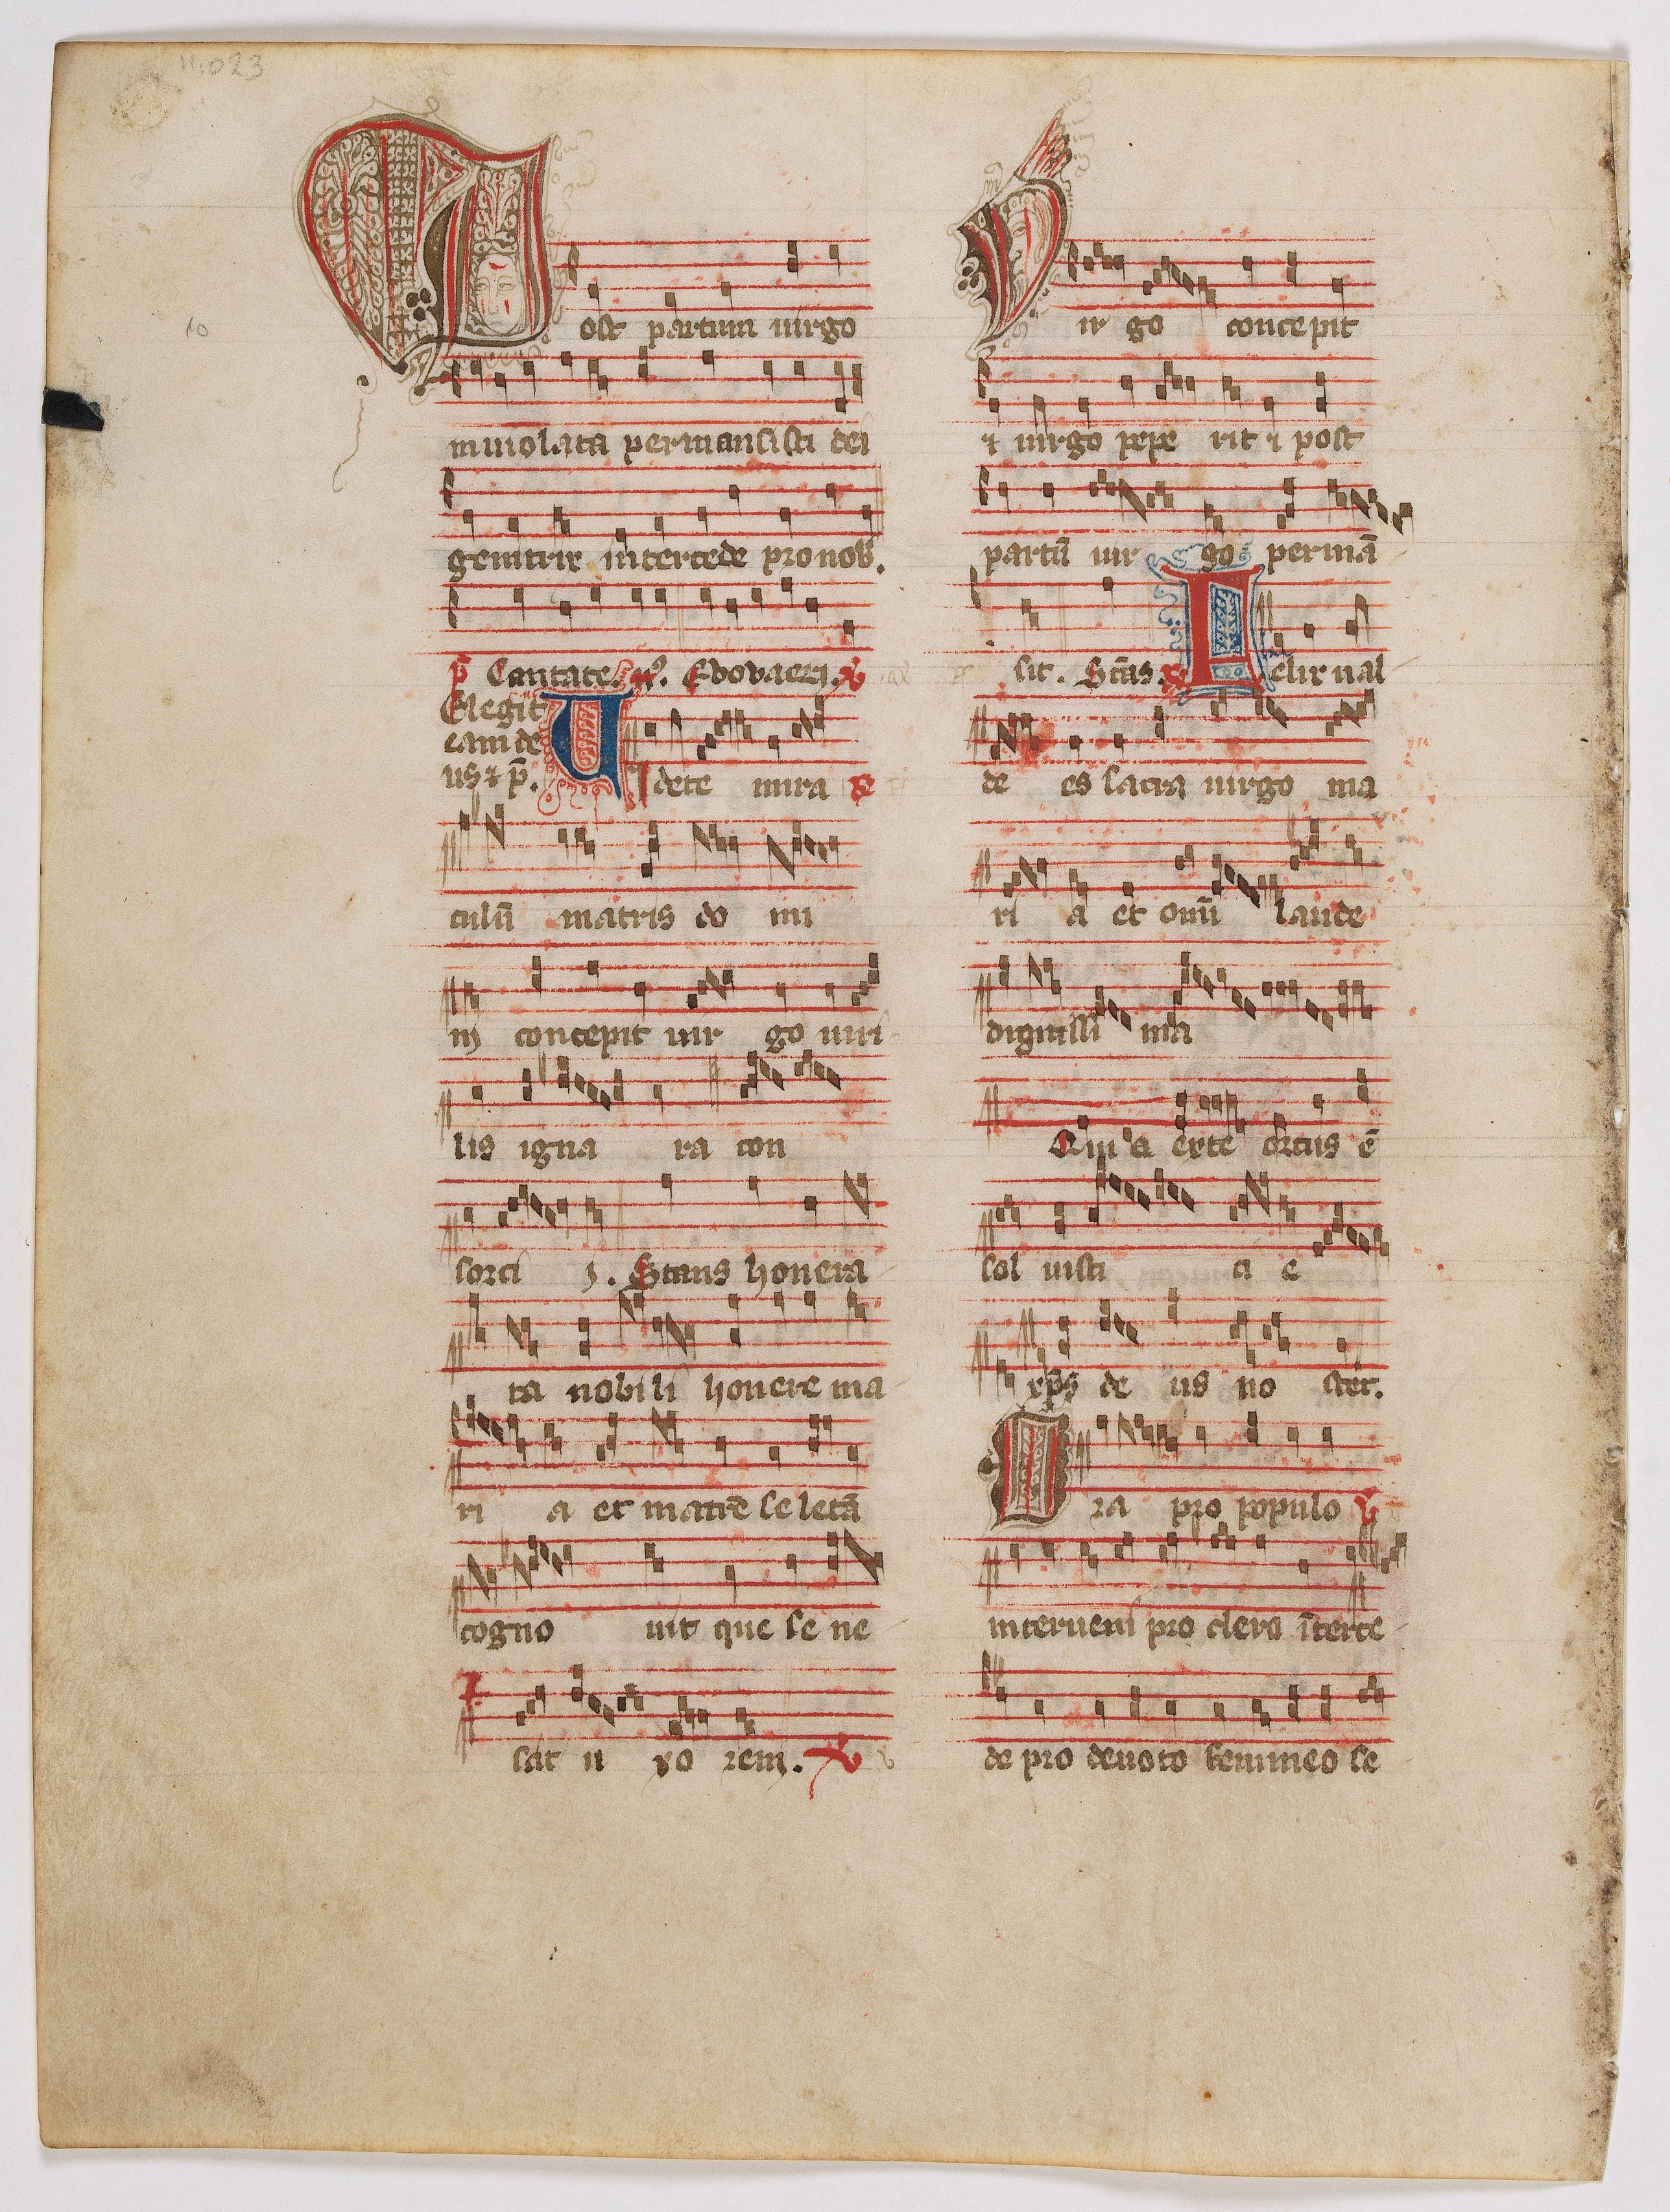 14023
10
Post partum virgo
inuiolata permansisti dei
genitrix intercede pro nob̄.
p̄ Cantate. ps. Evovaen. v
Elegit
eam de
us ⁊ p̄. Uidete mira R
culū matris do mi
nj concepit uir go uiri
lis igna ra con
sorci j. Stans honera
ta nobili honere ma
ri a et matrē se letā
cogno uit que se ne
scit u xo rem. v
Vir go concepit
⁊ uirgo pepe rit ⁊ post
partū uir go permā
sit. Stās. R Felix nā
de es sacra uirgo ma
ri a et omī laude
dignissi ma
Qui a ex te ortus ē
sol iusti ci e
xp̄s de us no ster.
Ora pro populo v
interueni pro clero īterce
de pro deuoto femineo se